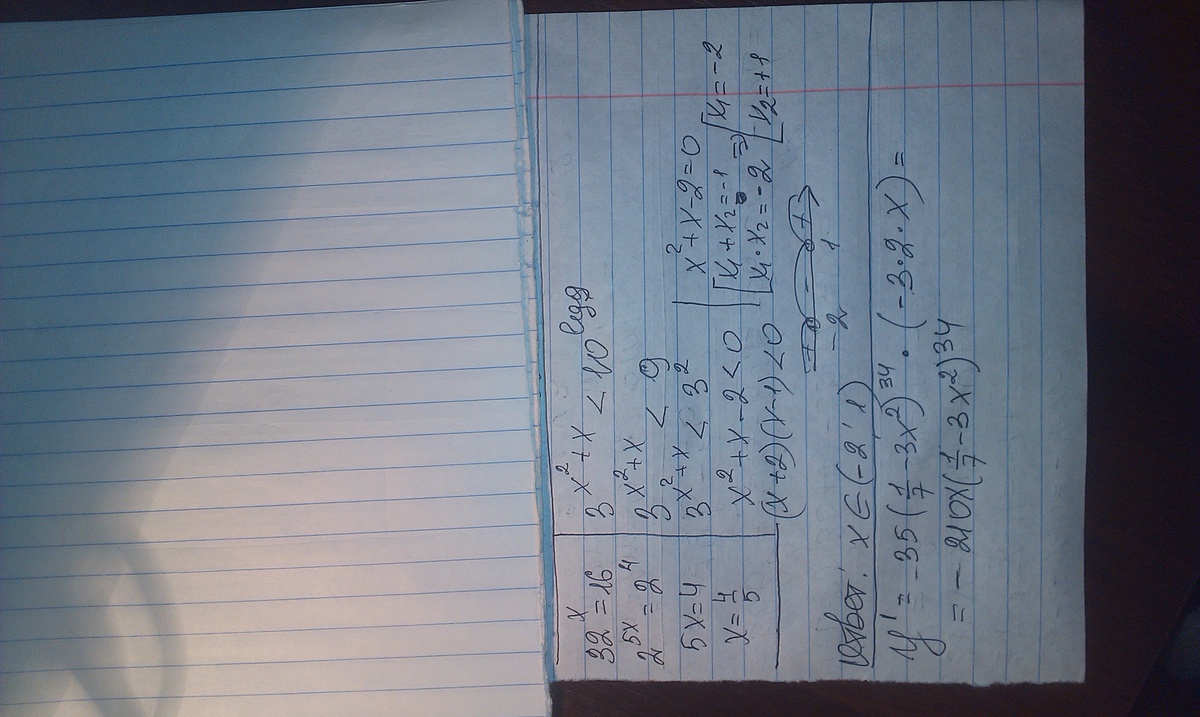 32^x = 16
2^{5x} = 2^4
5x = 4
x = 4/5
3^{x^2+x} < 10^{lg9}
3^{x^2+x} < 9
3^{x^2+x} < 3^2
x^2+x-2<0
(x+2)(x-1)<0
x^2+x-2=0
[x_1+x_2=-1 => [x_1=-2
[x_1·x_2=-2 [x_2=+1
+ - +
-2 1
Ответ: x∈(-2; 1)
y' = -35(1/7-3x^2)^{34}·(-3·2·x)=
= -210x(1/7-3x^2)^{34}